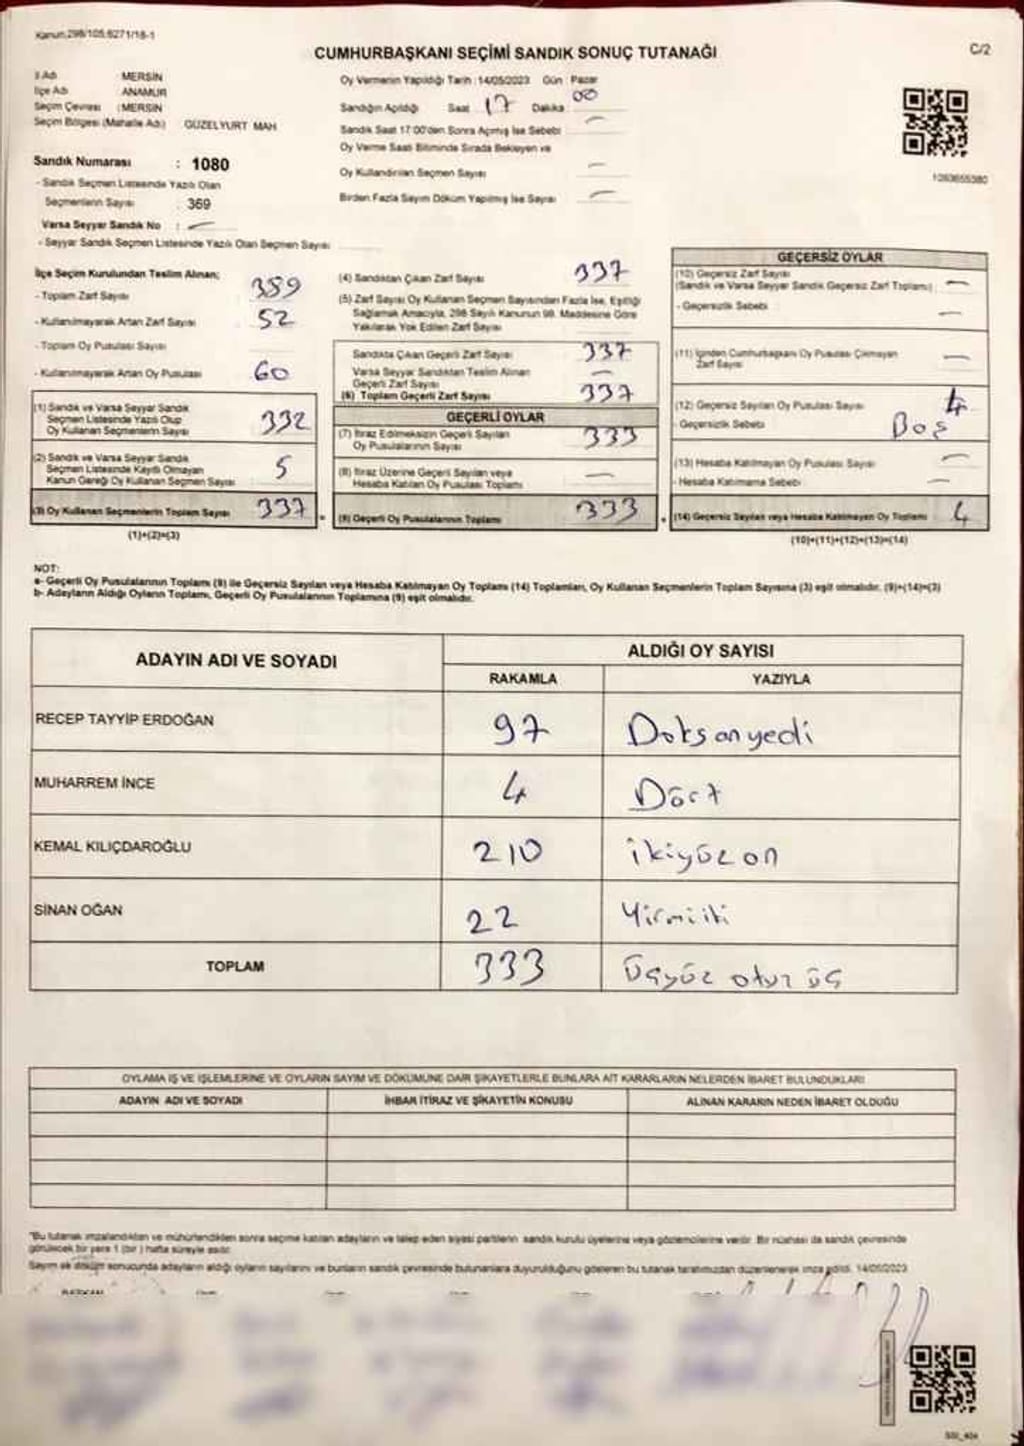 Kanun:298/105,6271/18-1
CUMHURBAŞKANI SEÇİMİ SANDIK SONUÇ TUTANAĞI
C/2
İl Adı MERSİN
İlçe Adı ANAMUR
Seçim Çevresi : MERSİN
Seçim Bölgesi (Mahalle Adı) GÜZELYURT MAH
Sandık Numarası : 1080
- Sandık Seçmen Listesinde Yazılı Olan
Seçmenlerin Sayısı : 369
Varsa Seyyar Sandık No : -
- Seyyar Sandık Seçmen Listesinde Yazılı Olan Seçmen Sayısı
Oy Vermenin Yapıldığı Tarih : 14/05/2023 Gün : Pazar
Sandığın Açıldığı Saat 17 Dakika 00
Sandık Saat 17:00'den Sonra Açılmış İse Sebebi -
Oy Verme Saati Bitiminde Sırada Bekleyen ve
Oy Kullandırılan Seçmen Sayısı -
Birden Fazla Sayım Döküm Yapılmış İse Sayısı -
1093655380
İlçe Seçim Kurulundan Teslim Alınan;
- Toplam Zarf Sayısı 389
- Kullanılmayarak Artan Zarf Sayısı 52
- Toplam Oy Pusulası Sayısı
- Kullanılmayarak Artan Oy Pusulası 60
(1) Sandık ve Varsa Seyyar Sandık
Seçmen Listesinde Yazılı Olup
Oy Kullanan Seçmenlerin Sayısı 332
(2) Sandık ve Varsa Seyyar Sandık
Seçmen Listesinde Kayıtlı Olmayan
Kanun Gereği Oy Kullanan Seçmen Sayısı 5
(3) Oy Kullanan Seçmenlerin Toplam Sayısı 337 =
(1)+(2)=(3)
(4) Sandıktan Çıkan Zarf Sayısı 337
(5) Zarf Sayısı Oy Kullanan Seçmen Sayısından Fazla İse, Eşitliği
Sağlamak Amacıyla, 298 Sayılı Kanunun 98. Maddesine Göre
Yakılarak Yok Edilen Zarf Sayısı
Sandıkta Çıkan Geçerli Zarf Sayısı 337
Varsa Seyyar Sandıktan Teslim Alınan
Geçerli Zarf Sayısı -
(6) Toplam Geçerli Zarf Sayısı 337
GEÇERLİ OYLAR
(7) İtiraz Edilmeksizin Geçerli Sayılan
Oy Pusulalarının Sayısı 333
(8) İtiraz Üzerine Geçerli Sayılan veya
Hesaba Katılan Oy Pusulası Toplamı -
(9) Geçerli Oy Pusulalarının Toplamı 333 +
GEÇERSİZ OYLAR
(10) Geçersiz Zarf Sayısı
(Sandık ve Varsa Seyyar Sandık Geçersiz Zarf Toplamı) -
- Geçersizlik Sebebi : -
(11) İçinden Cumhurbaşkanı Oy Pusulası Çıkmayan
Zarf Sayısı -
(12) Geçersiz Sayılan Oy Pusulası Sayısı 4
- Geçersizlik Sebebi Boş
(13) Hesaba Katılmayan Oy Pusulası Sayısı -
- Hesaba Katılmama Sebebi -
(14) Geçersiz Sayılan veya Hesaba Katılmayan Oy Toplamı 4
(10)+(11)+(12)+(13)=(14)
NOT:
a- Geçerli Oy Pusulalarının Toplamı (9) ile Geçersiz Sayılan veya Hesaba Katılmayan Oy Toplamı (14) Toplamları, Oy Kullanan Seçmenlerin Toplam Sayısına (3) eşit olmalıdır. (9)+(14)=(3)
b- Adayların Aldığı Oyların Toplamı, Geçerli Oy Pusulalarının Toplamına (9) eşit olmalıdır.
ADAYIN ADI VE SOYADI ALDIĞI OY SAYISI
RAKAMLA YAZIYLA
RECEP TAYYİP ERDOĞAN 97 Doksanyedi
MUHARREM İNCE 4 Dört
KEMAL KILIÇDAROĞLU 210 ikiyüzon
SİNAN OĞAN 22 Yirmiiki
TOPLAM 333 Üçyüz otuz üç
OYLAMA İŞ VE İŞLEMLERİNE VE OYLARIN SAYIM VE DÖKÜMÜNE DAİR ŞİKAYETLERLE BUNLARA AİT KARARLARIN NELERDEN İBARET BULUNDUKLARI
ADAYIN ADI VE SOYADI İHBAR İTİRAZ VE ŞİKAYETİN KONUSU ALINAN KARARIN NEDEN İBARET OLDUĞU
"Bu tutanak imzalandıktan ve mühürlendikten sonra seçime katılan adayların ve talep eden siyasi partilerin sandık kurulu üyelerine veya gözlemcilerine verilir. Bir nüshası da sandık çevresinde
görülecek bir yere 1 (bir) hafta süreyle asılır.
Sayım ve döküm sonucunda adayların aldığı oyların sayılarını ve bunların sandık çevresinde bulunanlara duyurulduğunu gösteren bu tutanak tarafımızdan düzenlenerek imza edildi. 14/05/2023